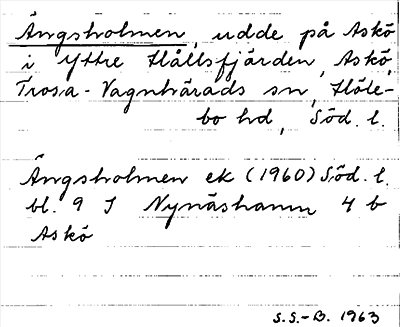 Ängsholmen, udde på Askö
i Yttre Hållsfjärden, Askö,
Trosa-Vagnhärads sn, Höle-
bo hd, Söd. l.
Ängsholmen ek (1960) Söd. l.
bl. 9 I Nynäshamn 4 b
Askö
S.S.-B. 1963